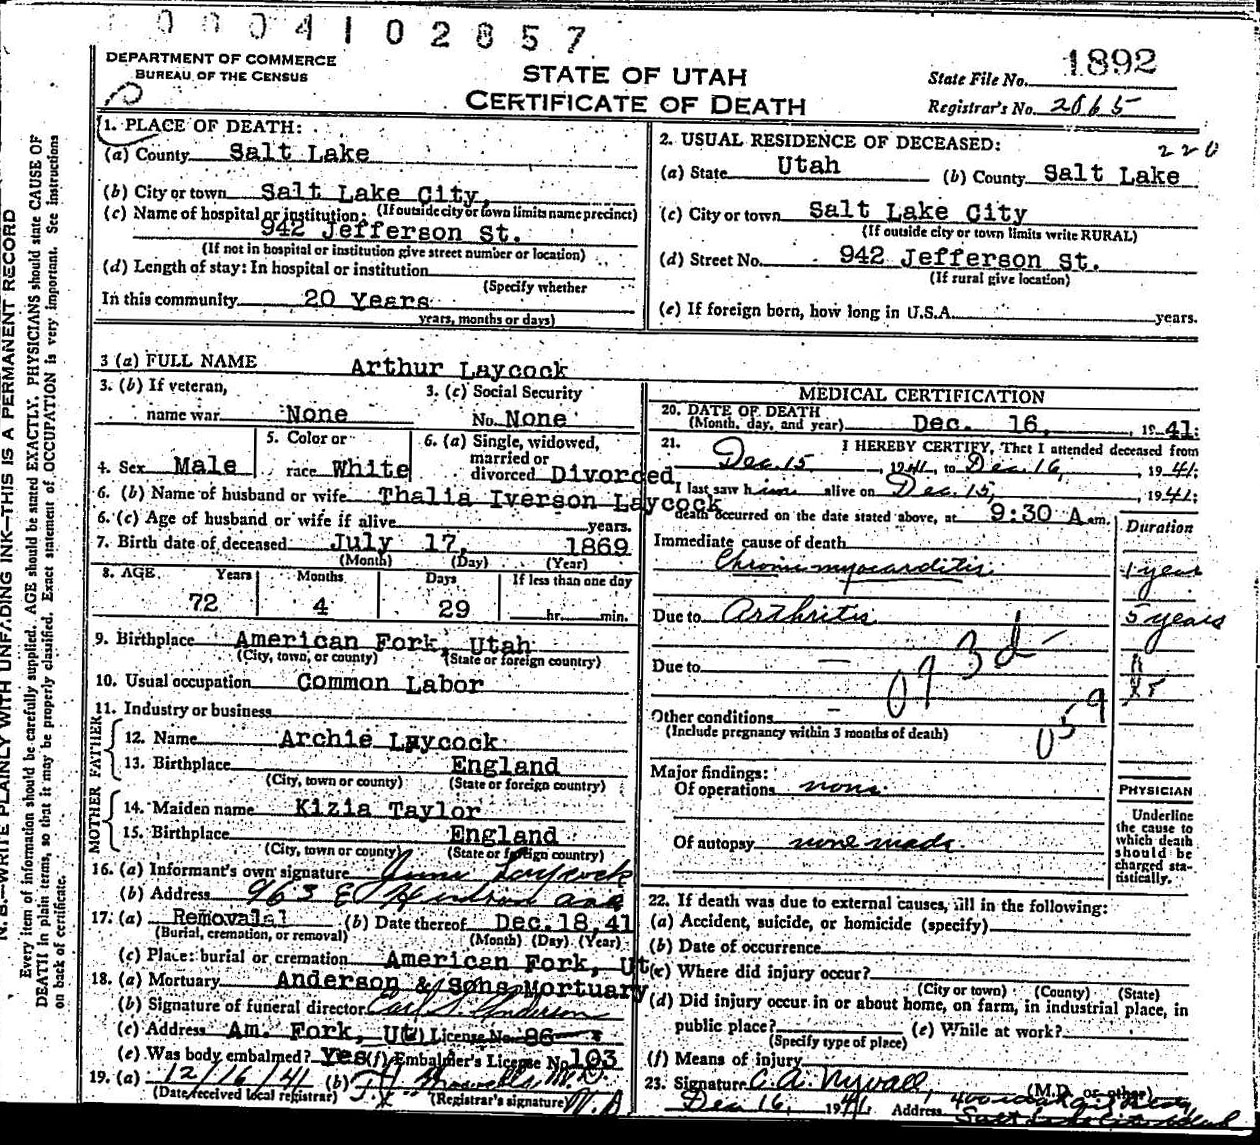 0004102857
DEPARTMENT OF COMMERCE
BUREAU OF THE CENSUS
STATE OF UTAH
CERTIFICATE OF DEATH
State File No. 1892
Registrar's No. 2065
N. B.—WRITE PLAINLY WITH UNFADING INK—THIS IS A PERMANENT RECORD
Every item of information should be carefully supplied. AGE should be stated EXACTLY. PHYSICIANS should state CAUSE OF
DEATH in plain terms, so that it may be properly classified. Exact statement of OCCUPATION is very important. See instructions
on back of certificate.
1. PLACE OF DEATH:
(a) County Salt Lake
(b) City or town Salt Lake City,
(If outside city or town limits name precinct)
(c) Name of hospital or institution:
942 Jefferson St.
(If not in hospital or institution give street number or location)
(d) Length of stay: In hospital or institution
(Specify whether
In this community 20 Years
years, months or days)
2. USUAL RESIDENCE OF DECEASED:
220
(a) State Utah (b) County Salt Lake
(c) City or town Salt Lake City
(If outside city or town limits write RURAL)
(d) Street No. 942 Jefferson St.
(If rural give location)
(e) If foreign born, how long in U.S.A. years.
3 (a) FULL NAME Arthur Laycock
3. (b) If veteran,
name war None
3. (c) Social Security
No. None
4. Sex Male
5. Color or
race White
6. (a) Single, widowed,
married or
divorced Divorced
6. (b) Name of husband or wife Thalia Iverson Laycock
6. (c) Age of husband or wife if alive years.
7. Birth date of deceased July 17, 1869
(Month) (Day) (Year)
8. AGE Years Months Days If less than one day
72 4 29 hr. min.
9. Birthplace American Fork, Utah
(City, town, or county) (State or foreign country)
10. Usual occupation Common Labor
11. Industry or business
FATHER
12. Name Archie Laycock
13. Birthplace England
(City, town or county) (State or foreign country)
MOTHER
14. Maiden name Kizia Taylor
15. Birthplace England
(City, town or county) (State or foreign country)
16. (a) Informant's own signature Laycock
(b) Address 963 E
17. (a) Removal (b) Date thereof Dec. 18, 41
(Burial, cremation, or removal) (Month) (Day) (Year)
(c) Place: burial or cremation American Fork, Ut
18. (a) Mortuary Anderson & Sons Mortuary
(b) Signature of funeral director Anderson
(c) Address Am. Fork, Ut (d) License No. 86
(e) Was body embalmed? Yes (f) Embalmer's License No. 103
19. (a) 12/16/41 (b) M.D.
(Date received local registrar) (Registrar's signature)
MEDICAL CERTIFICATION
20. DATE OF DEATH
(Month, day, and year) Dec. 16, 1941
21. I HEREBY CERTIFY, That I attended deceased from
Dec. 15, 1941, to Dec 16, 1941
I last saw him alive on Dec. 15, 1941
death occurred on the date stated above, at 9:30 A m.
Duration
Immediate cause of death
Chronic myocarditis 1 year
Due to Arthritis 5 years
Due to
093d
059
Other conditions
(Include pregnancy within 3 months of death)
Major findings:
Of operations none
Of autopsy none made
PHYSICIAN
Underline
the cause to
which death
should be
charged sta-
tistically.
22. If death was due to external causes, fill in the following:
(a) Accident, suicide, or homicide (specify)
(b) Date of occurrence
(c) Where did injury occur?
(City or town) (County) (State)
(d) Did injury occur in or about home, on farm, in industrial place, in
public place? (e) While at work?
(Specify type of place)
(f) Means of injury
23. Signature C. A. Nyvall, (M.D. or other)
Dec 16, 1941 Address
Salt Lake City Utah